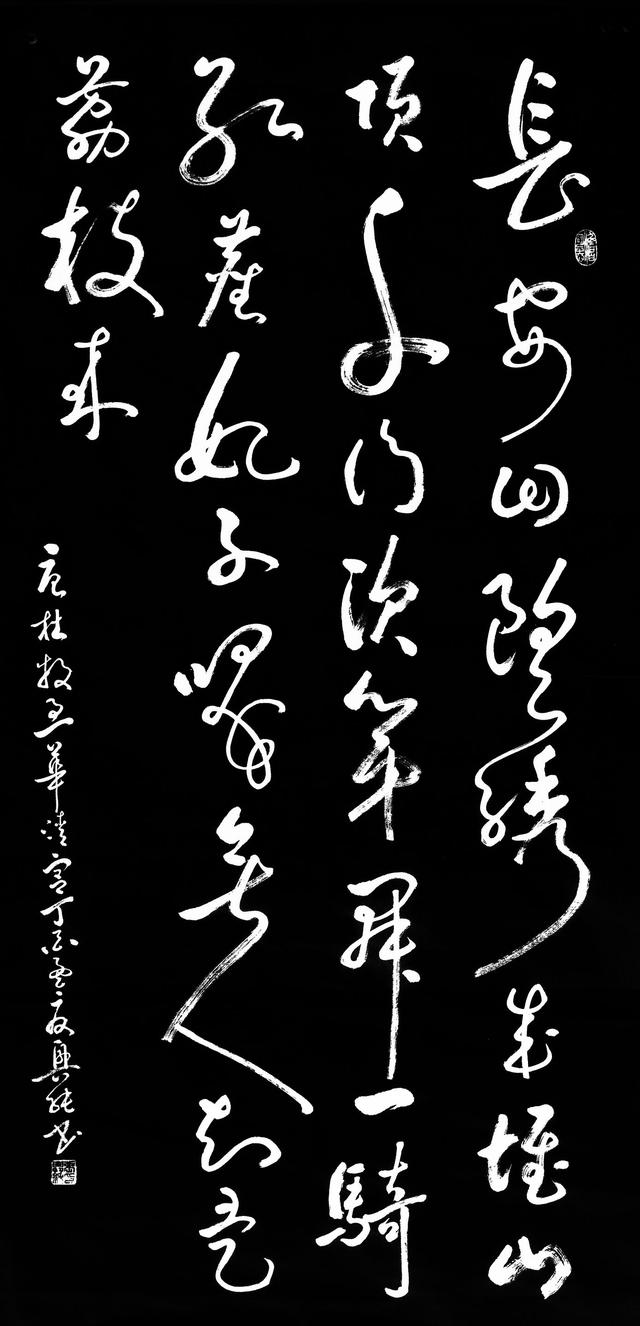 長安回望繡成堆山
頂千門次第開一騎
紅塵妃子笑無人知是
荔枝來
唐杜牧過華清宮丁酉孟夏興能書